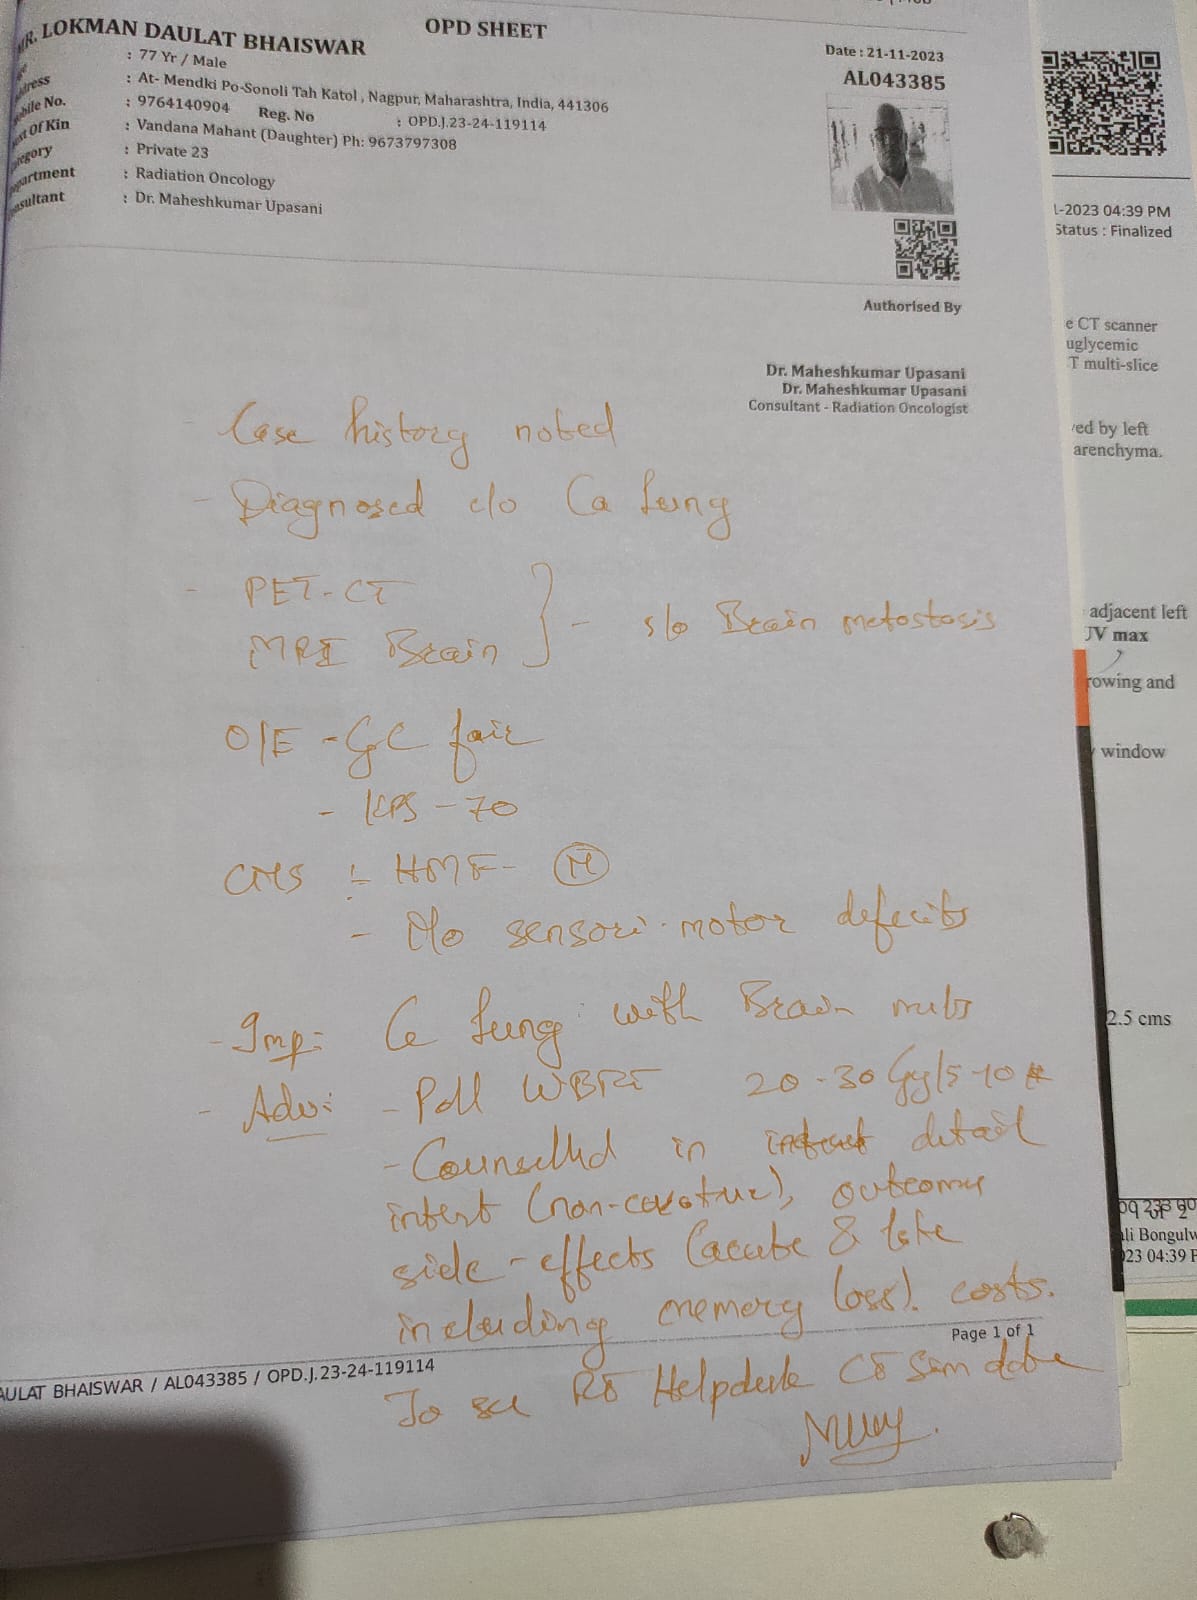 OPD SHEET
MR. LOKMAN DAULAT BHAISWAR
: 77 Yr / Male
Date : 21-11-2023
ress : At- Mendki Po-Sonoli Tah Katol , Nagpur, Maharashtra, India, 441306
AL043385
bile No. : 9764140904 Reg. No : OPD.J.23-24-119114
xt Of Kin : Vandana Mahant (Daughter) Ph: 9673797308
egory : Private 23
partment : Radiation Oncology
nsultant : Dr. Maheshkumar Upasani
Authorised By
Dr. Maheshkumar Upasani
Dr. Maheshkumar Upasani
Consultant - Radiation Oncologist
- Case history noted
- Diagnosed c/o Ca Lung
- PET-CT
MRI Brain } - s/o Brain metostosis
O/E - GC fair
- KPS - 70
CNS :- HMF - (N)
- No sensori-motor defecits
- Imp: Ca Lung with Brain mets
- Adv: - Pall WBRT 20-30 Gy/5-10 #
- Counselled in detail
intent (non-curative), outcomes
side-effects (acute & late
including memory loss). costs.
Page 1 of 1
AULAT BHAISWAR / AL043385 / OPD.J.23-24-119114
To see RO Helpdesk CT Sim date
1-2023 04:39 PM
Status : Finalized
e CT scanner
uglycemic
T multi-slice
ved by left
arenchyma.
adjacent left
UV max
rowing and
window
2.5 cms
li Bongulw
023 04:39 P